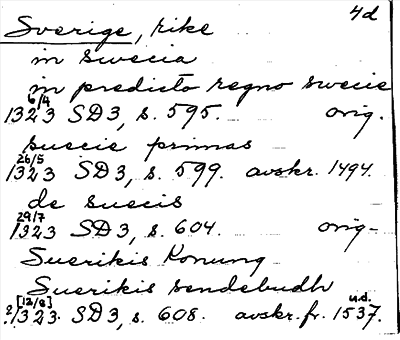 4d
Sverige, rike
in swecia
in predicto regno swecie
6/4
1323 SD3, s. 595. orig.
suecie primas
26/5
1323 SD3, s. 599. avskr. 1494.
de suecis
29/7
1323 SD3, s. 604. orig-
Suerikis Konung
Suerikis sendebudh
[12/8] u.d.
?1323. SD3, s. 608. avskr. fr. 1537.